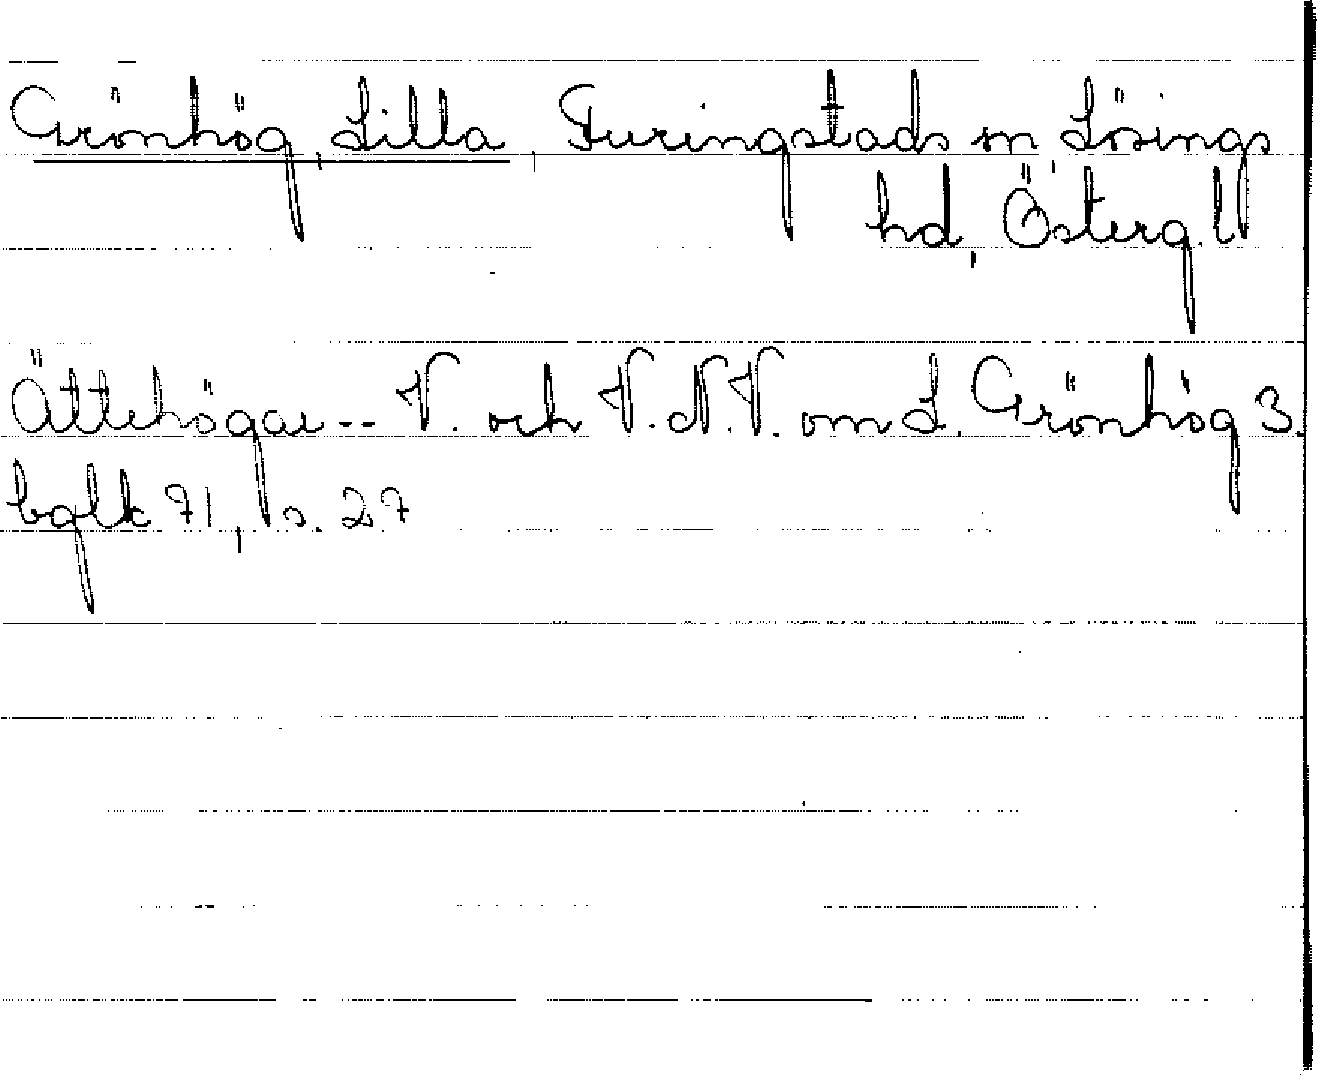 Grönhög, Lilla, Furingstads sn Lösings
hd, Österg. l
Ättehögar -- V. och V.N.V. om L. Grönhög 3.
bglk 71, s. 27